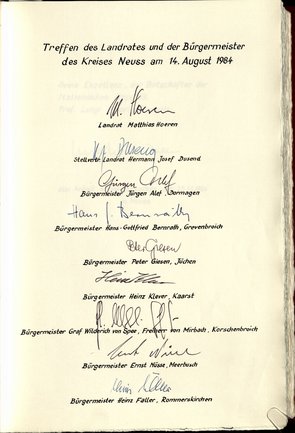 Treffen des Landrates und der Bürgermeister
des Kreises Neuss am 14. August 1984
M. Hoeren
Landrat Matthias Hoeren
Stellvertr. Landrat Hermann Josef Dusend
Jürgen Alef
Bürgermeister Jürgen Alef, Dormagen
Hans G. Bernrath
Bürgermeister Hans-Gottfried Bernrath, Grevenbroich
Peter Giesen
Bürgermeister Peter Giesen, Jüchen
Heinz Klever
Bürgermeister Heinz Klever, Kaarst
Bürgermeister Graf Wilderich von Spee, Freiherr von Mirbach, Korschenbroich
Ernst Nüsse
Bürgermeister Ernst Nüsse, Meerbusch
Bürgermeister Heinz Faller, Rommerskirchen